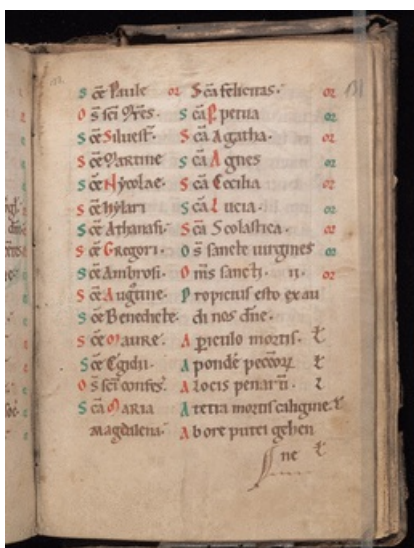 S ce Paule or
O s sci Mres.
S ce Siluest.
S ce Martine
S ce Nycolae.
S ce hylari
S ce Athanasi.
S ce Gregori.
S ce Ambrosi.
S ce Augustine.
S ce Benedicte.
S ce Maure.
S ce Egidii.
O s sci confes.
S ca Maria
Magdalena.
S ca felicitas. or
S ca Ppetua or
S ca Agatha. or
S ca Agnes or
S ca Cecilia or
S ca Lucia. or
S ca Scolastica. or
O s sancte uirgines or
O ms sancti. or
P ropicius esto exau
di nos dne.
A piculo mortis.
A
A locis penarū.
A tetra mortis caligine.
A bore putei gehen
ne